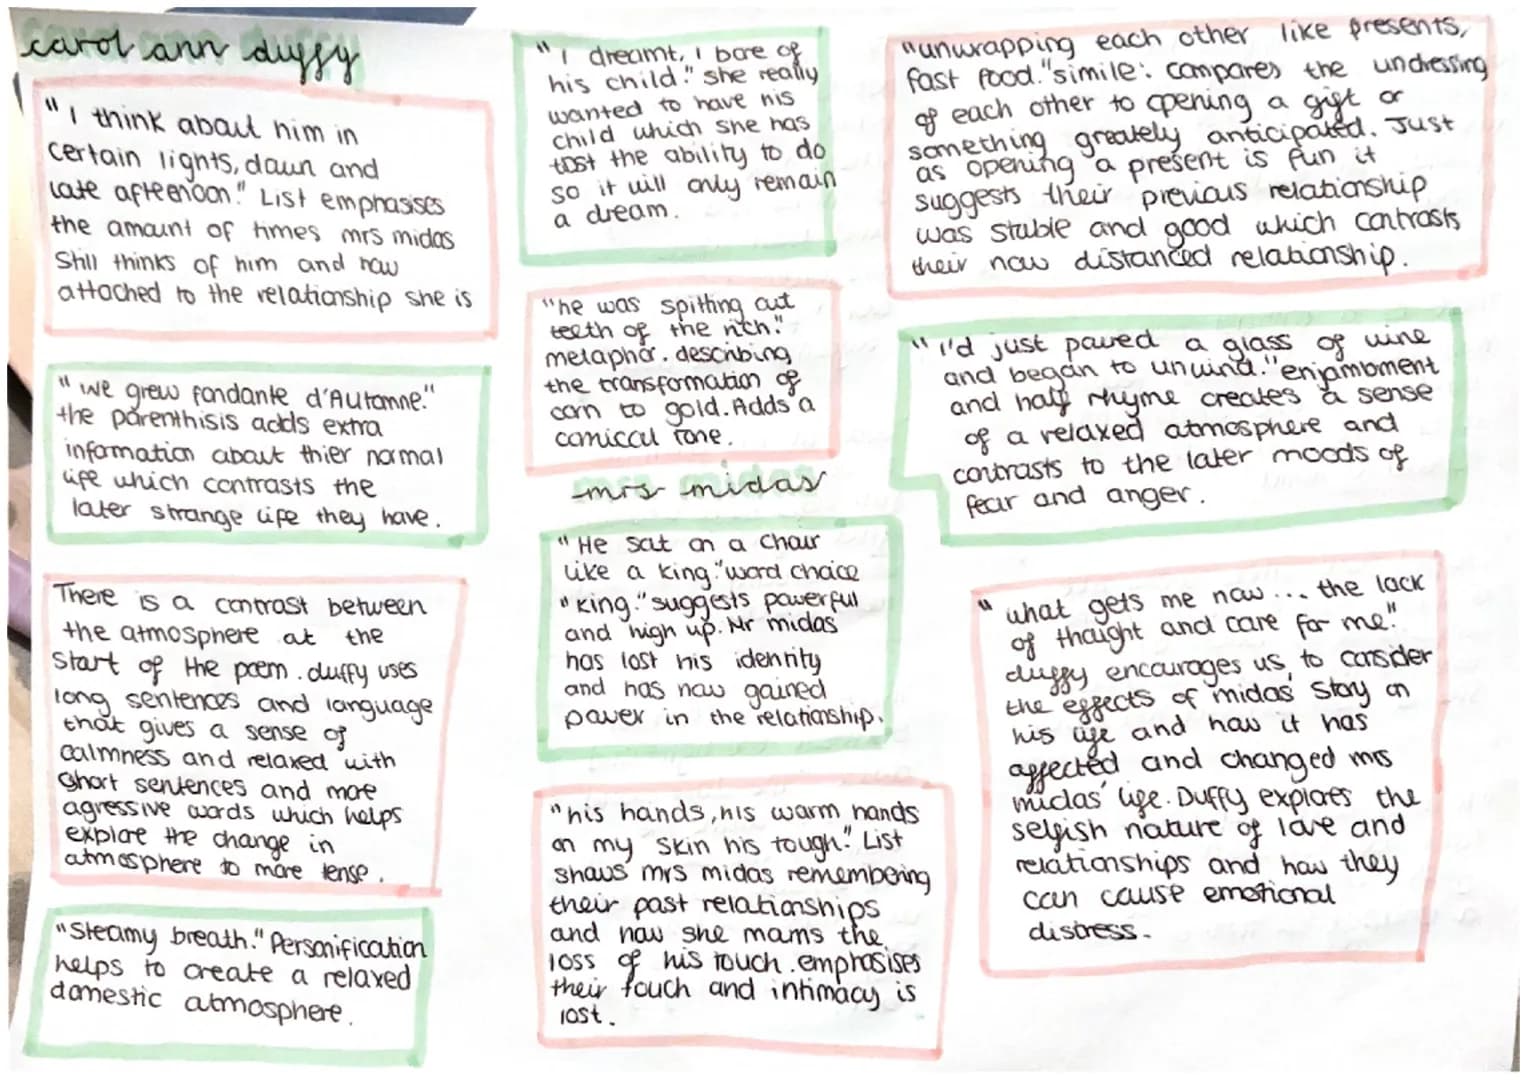 carol ann duffy
"I think about him in
certain lights, dawn and
late afternoon." List emphasises
the amount of times mrs midas
still thinks of him and how
attached to the relationship she is
"we grew fondante d'Automne."
the parenthisis adds extra
information about thier normal
life which contrasts the
later strange life they have.
There is a contrast between
the atmosphere at the
start of the poem. duffy uses
long sentences and language
that gives a sense of
calmness and relaxed with
short sentences and more
agressive words which helps
explore the change in
atmosphere to more tense.
"Steamy breath." Personification
helps to create a relaxed
domestic atmosphere.
"I dreamt, I bore of
his child." she really
wanted to have his
child which she has
lost the ability to do
so it will only remain
a dream.
"he was spitting out
teeth of the rich."
metaphor. describing
the transformation of
corn to gold. Adds a
comical tone.
mrs midas
"He sat on a chair
like a king." word choice
"king." suggests powerful
and high up. Mr midas
has lost his identity
and has now gained
power in the relationship.
"his hands, his warm hands
on my skin his tough." List
shows mrs midas remembering
their past relationships
and how she morns the
loss of his touch. emphasises
their touch and intimacy is
lost.
"unwrapping each other like presents,
fast food." simile: compares the undressing
of each other to opening a gift or
something greately anticipated. Just
as opening a present is fun it
suggests their previous relationship
was stable and good which contrasts
their now distanced relationship.
"i'd just poured a glass of wine
and began to unwind." enjambment
and half rhyme creates a sense
of a relaxed atmosphere and
contrasts to the later moods of
fear and anger.
"what gets me now... the lack
of thought and care for me."
duffy encourages us, to consider
the effects of midas' story on
his life and how it has
affected and changed mrs
midas' life. Duffy explores the
selfish nature of love and
relationships and how they
can cause emotional
distress.